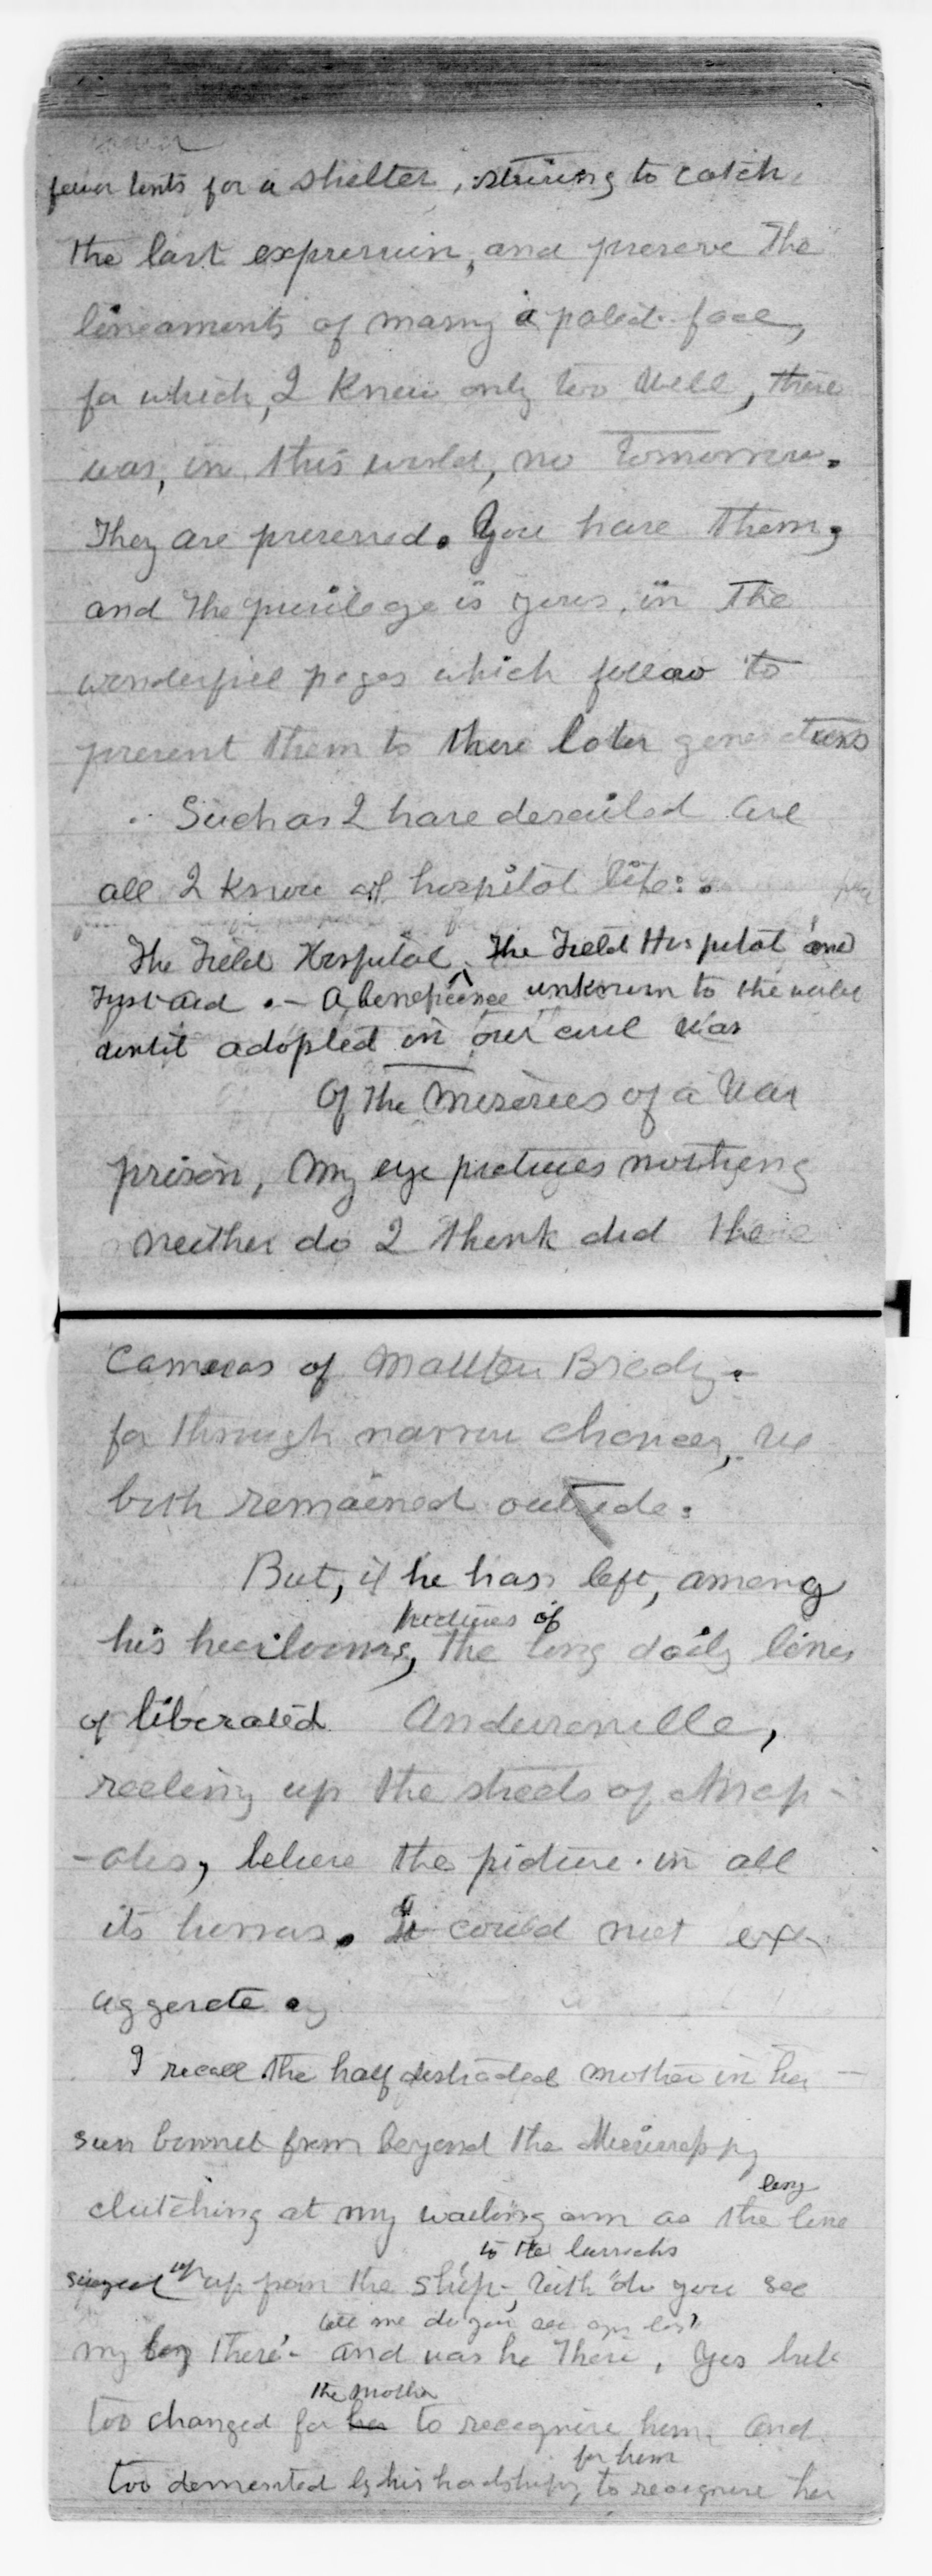 fever tents for a shelter, striving to catch,
the last expression, and preserve the
lineaments of many a palid face,
for which, I knew only too well, there
was, in this world, no tomorrow.
They are preserved. You have them,
and the privilege is yours, in the
wonderful pages which follow to
present them to these later generations
Such as I have described are
all I know of hospital life:.
The Field Hospital, The Field Hospital and
First aid .— A beneficence unknown to the world
until adopted in our civil war
Of the miseries of a War
prison, my eye pictures nothing
neither do I think did these
Cameras of Matthew Brady —
for through narrow chances, we
both remained outside.
But, if he has left, among
pictures of
his heirlooms, the long daily lines
of liberated Andersonville,
reeling up the streets of Anap-
-olis, believe the picture in all
its horrors. It could not ex-
aggerate
I recall the half distracted mother in her
sun bonnet from beyond the Mississippi
long
clutching at my waiting arm as the line
to the barracks
surged up up from the ship, with "do you see
tell me do you see my boy"
my boy there"- and was he there, Yes but
the mother
too changed for her to recognize him, and
for him
too demented by his hardships, to recognize her